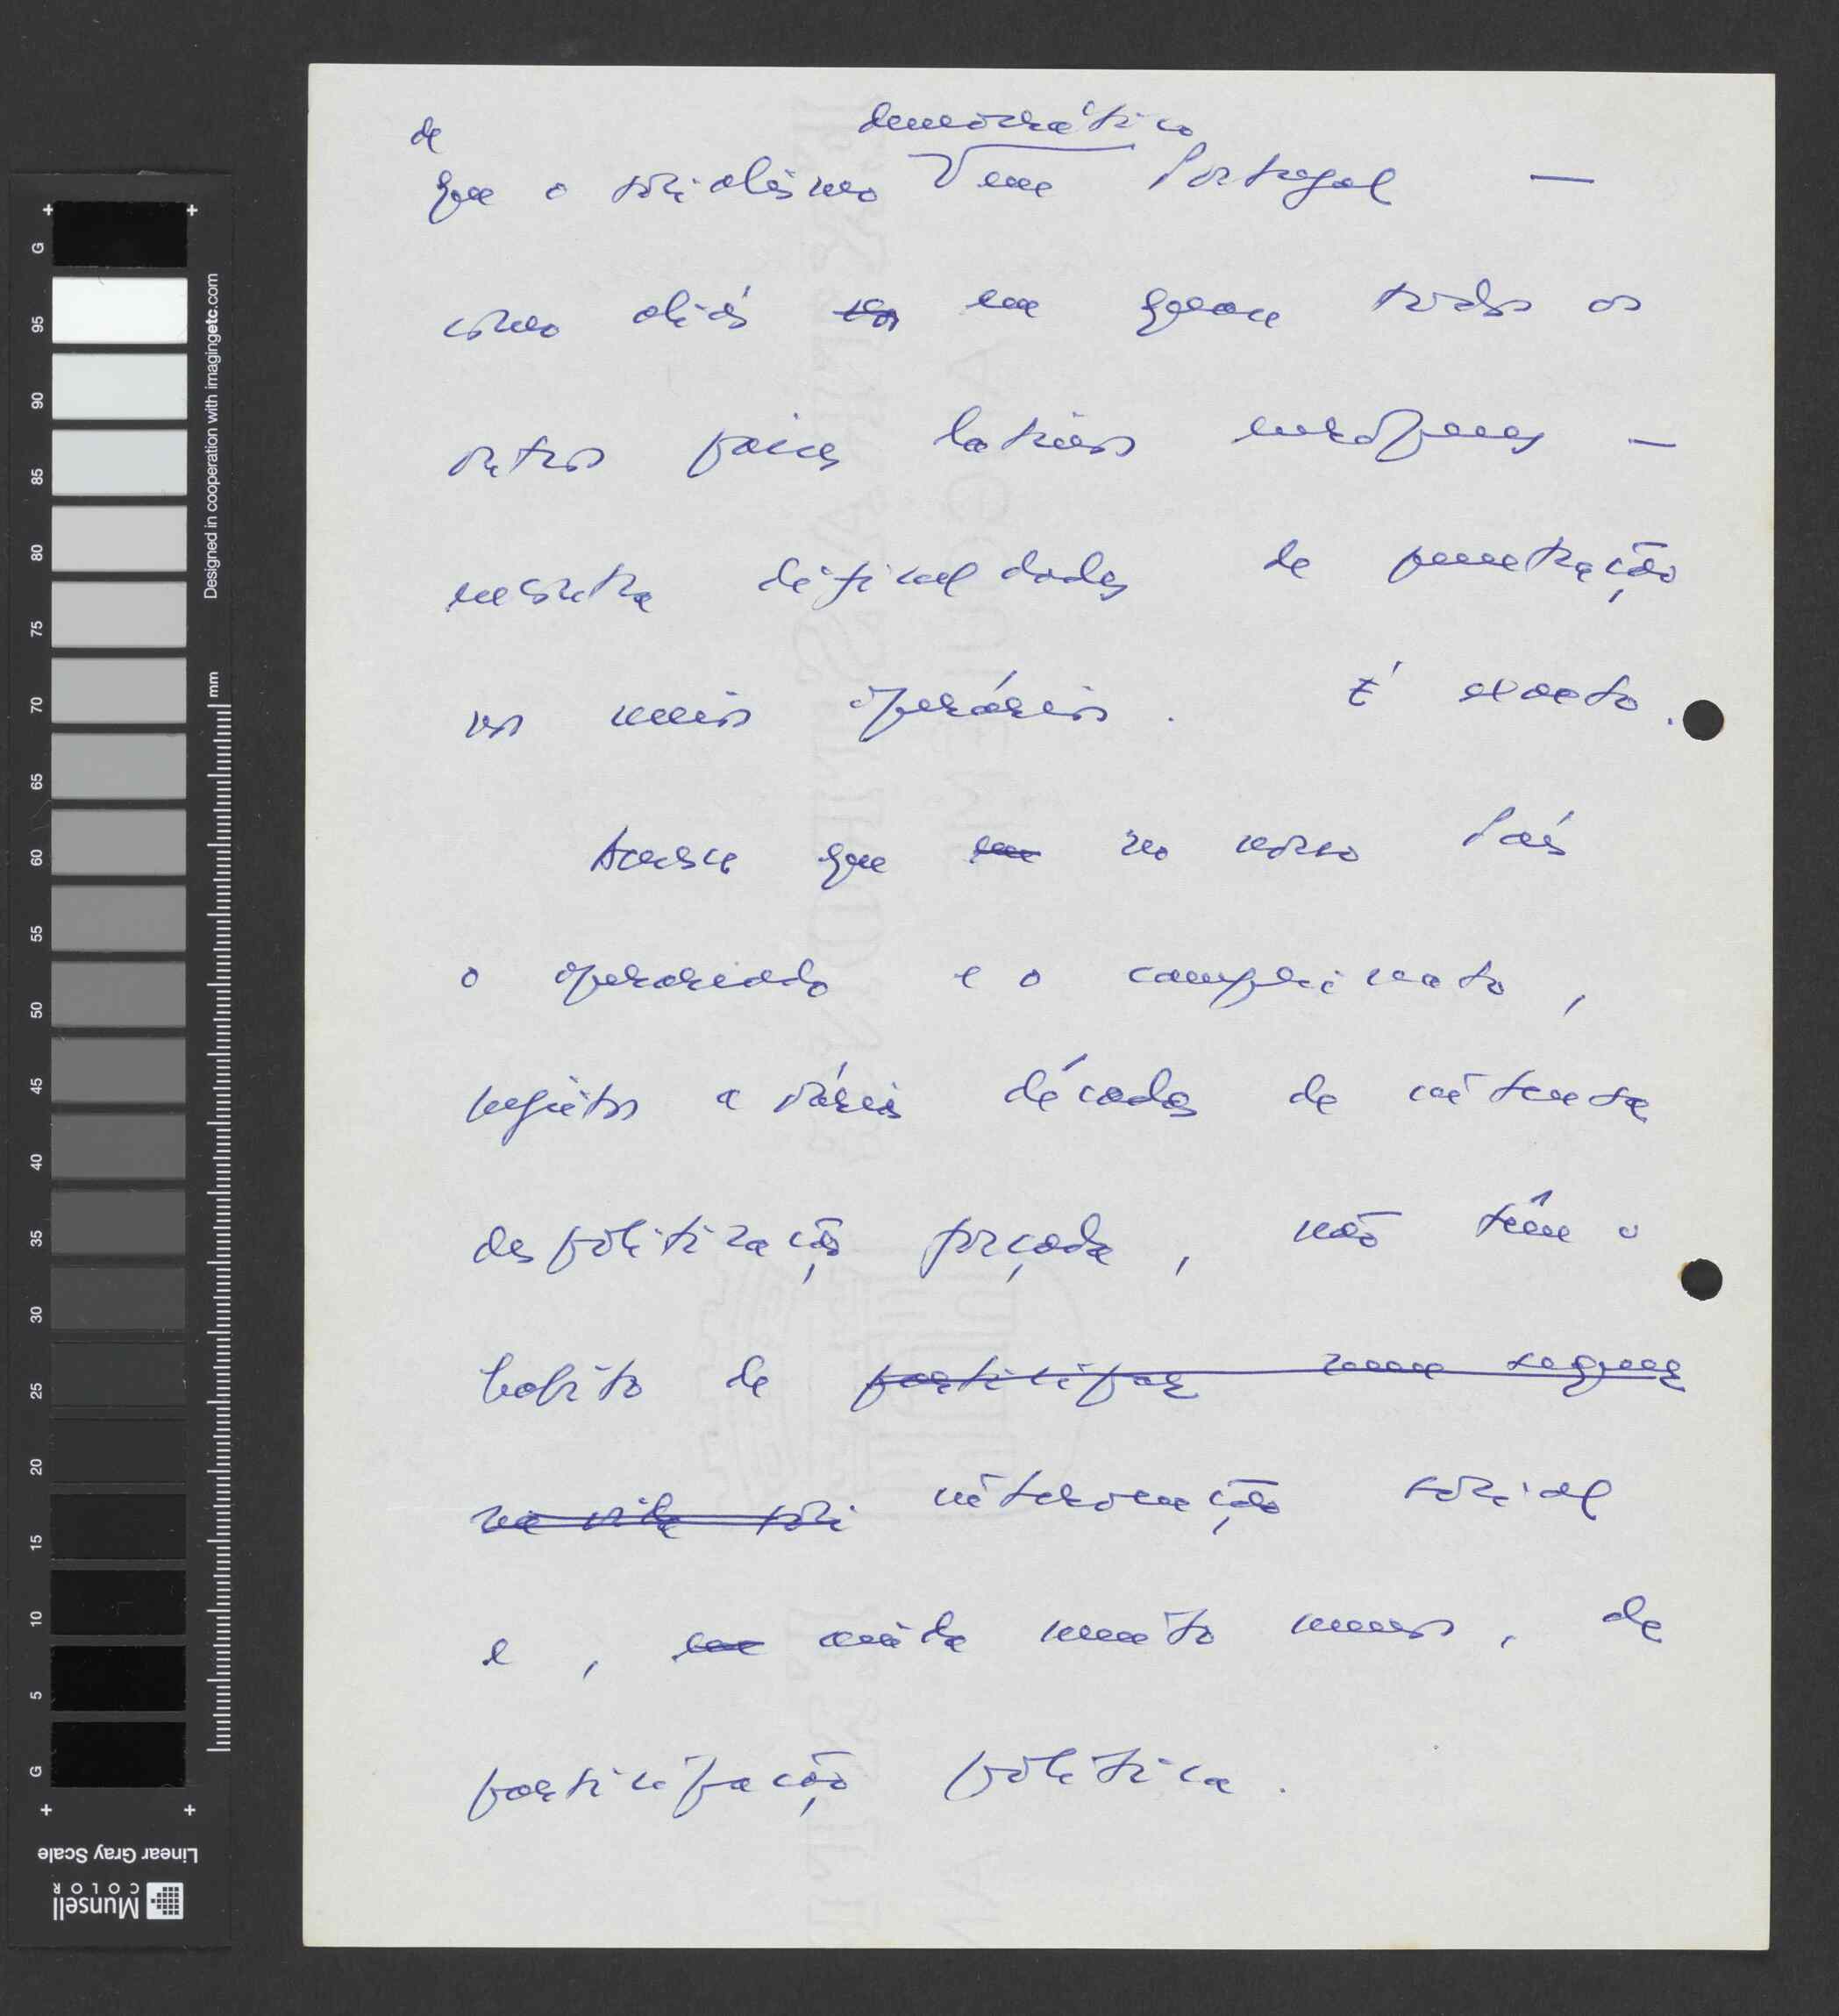 de
democrático
que o socialismo V em Portugal —
como aliás nos em quase todos os
outros países latinos europeus —
encontra dificuldades de penetração
nos meios operários. É exacto.
Acresce que em no nosso País
o operariado e o campesinato,
sujeitos a várias décadas de intensa
despolitização forçada, não têm o
hábito de participar numa
na vida soci intervenção social
e, em ainda muito menos, de
participação política.
G 95 90 85 80 75 70 65 60 55 50 45 40 35 30 25 20 15 10 5 G
Designed in cooperation with imagingetc.com
mm
Linear Gray Scale
Munsell
COLOR